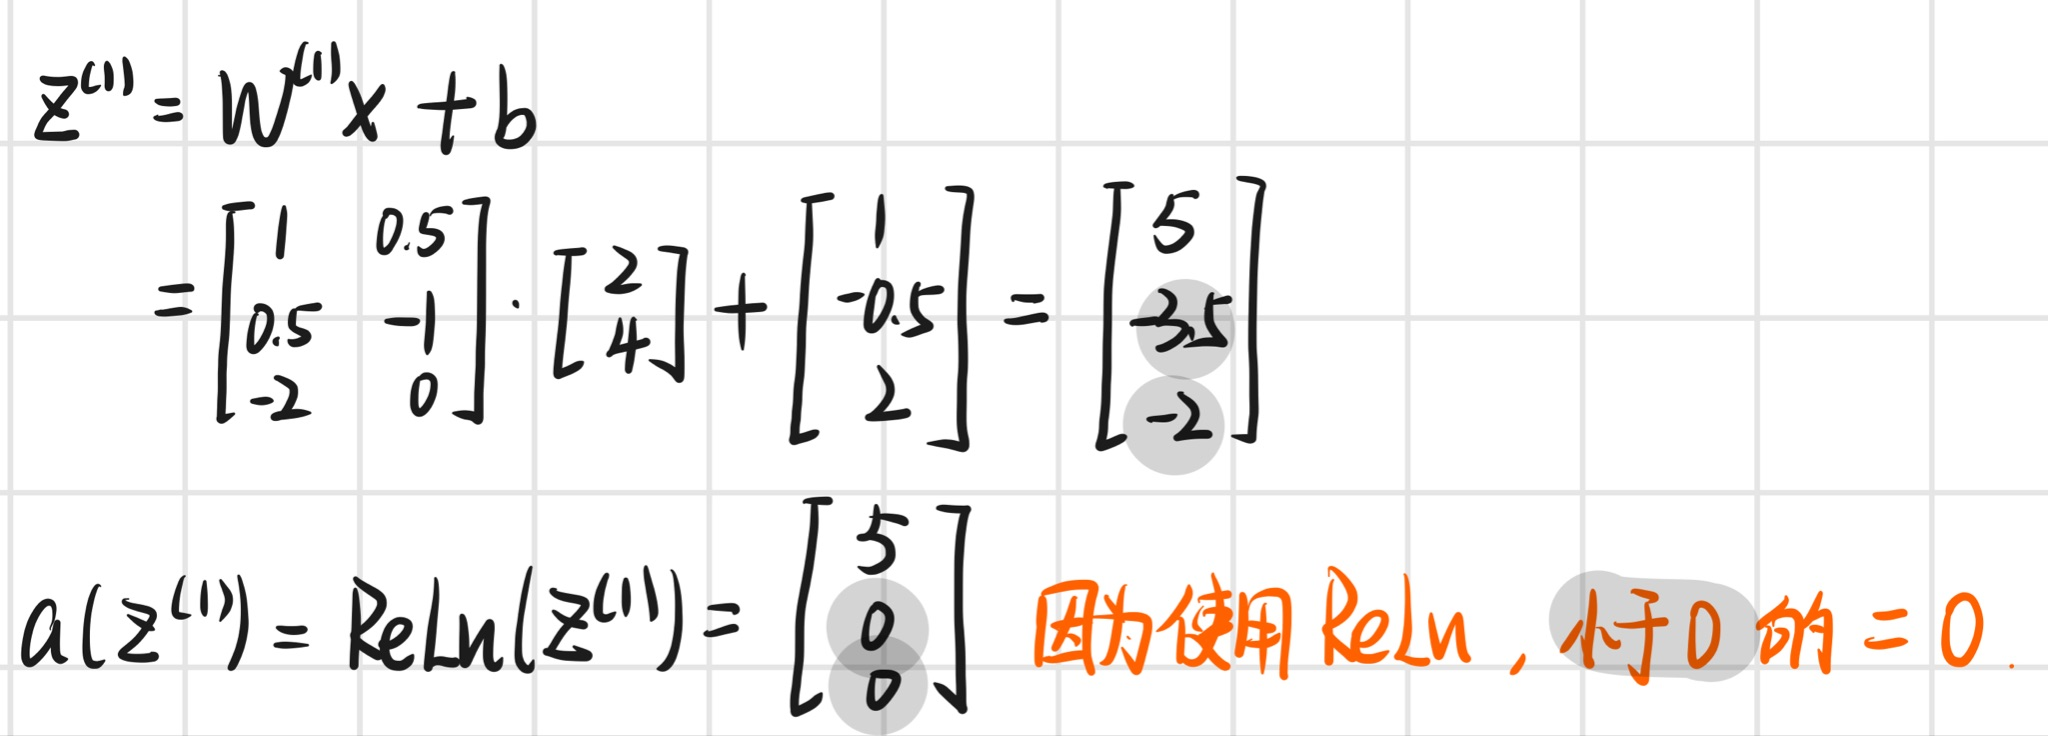 z⁽¹⁾ = W⁽¹⁾x + b
= [1 0.5; 0.5 -1; -2 0] · [2; 4] + [1; -0.5; 2] = [5; -3.5; -2]
a(z⁽¹⁾) = ReLu(z⁽¹⁾) = [5; 0; 0] 因为使用 ReLu , 小于0 的 = 0 .